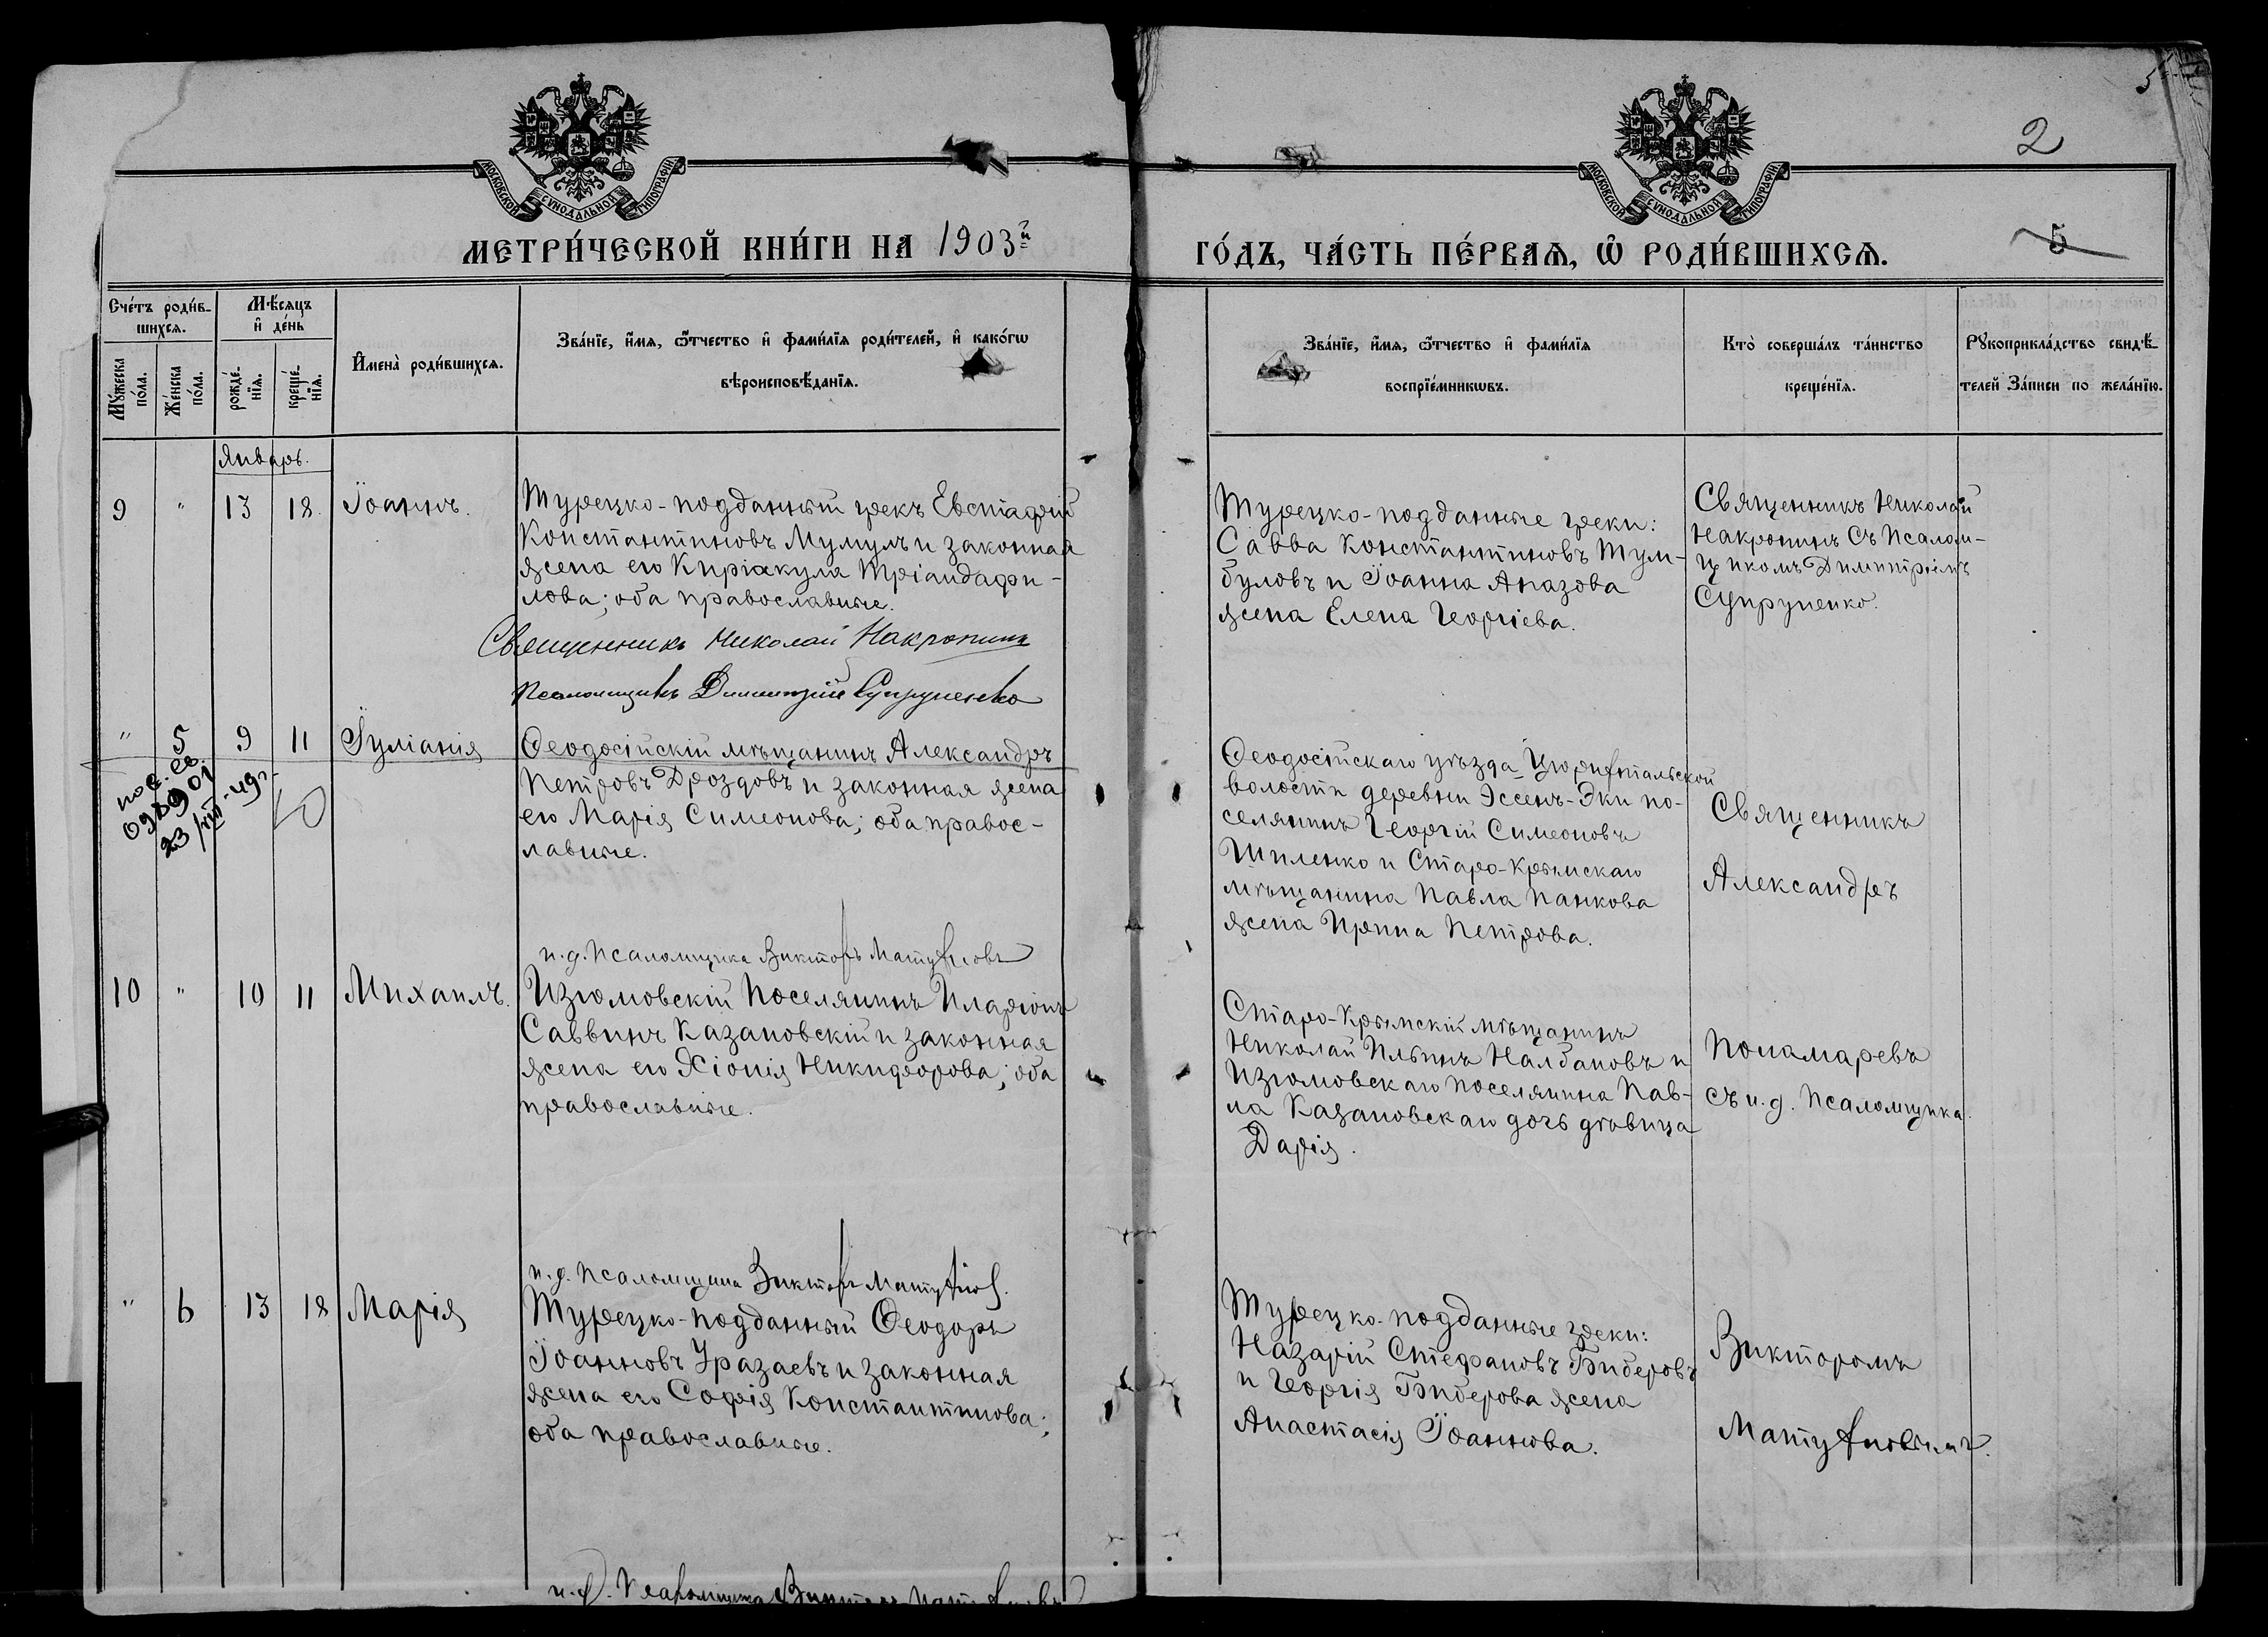 5
2
МОСКОВСКОЙ СѴНОДАЛЬНОЙ ТИПОГРАФІИ
МОСКОВСКОЙ СѴНОДАЛЬНОЙ ТИПОГРАФІИ
МЕТРИ́ЧЕСКОЙ КНИ́ГИ НА 1903й
ГО́ДЪ, ЧА́СТЬ ПЕ́РВАѦ, Ѡ҆ РОДИ́ВШИХСѦ.
5
Сче́тъ роди́в-
шихсѧ.
Мꙋ́жеска по́ла.
Же́нска по́ла.
Мѣ́сѧцъ и҆ де́нь
рожде́нїѧ.
креще́нїѧ.
И҆мена̀ роди́вшихсѧ.
Зва́нїе, и҆́мѧ, ѻ҆́тчество и҆ фами́лїѧ роди́телей, и҆ како́гѡ
вѣроисповѣ́данїѧ.
Зва́нїе, и҆́мѧ, ѻ҆́тчество и҆ фами́лїѧ
воспрїе́мникѡвъ.
Кто̀ соверша́лъ та́инство
креще́нїѧ.
Рꙋкоприкла́дство свидѣ́-
телей За́писи по жела́нїю.
Январь.
9 " 13 18. Іоаннъ.
Турецко-подданный грекъ Евстафій
Константиновъ Мумулъ и законная
жена его Киріакула Тріандафи-
лова; оба православные.
Священникъ Николай Накропинъ
Псаломщикъ Димитрій Супруненко
Турецко-подданные греки:
Савва Константиновъ Тум-
буловъ и Іоанна Апазова
жена Елена Георгіева.
Священникъ Николай
Накропинъ съ Псалом-
щикомъ Димитріемъ
Супруненко.
" 5 9 11 Іуліанія
23/VIII-49г.
Ѳеодосійскій мѣщанинъ Александръ
Петровъ Дроздовъ и законная жена
его Марія Симеонова; оба правос-
лавные.
и.д. Псаломщика Викторъ
Ѳеодосійскаго уѣзда Цюрихтальской
волости деревни Эссенъ-Эки по-
селянинъ Георгій Симеоновъ
Шиленко и Старо-Крымскаго
мѣщанина Павла Панкова
жена Ирина Петрова.
Священникъ
Александръ
10 " 10 11 Михаилъ.
Изюмовскій Поселянинъ Иларіонъ
Саввинъ Казановскій и законная
жена его Хіонія Никифорова; оба
православные.
и.д. Псаломщика Викторъ
Старо-Крымскій мѣщанинъ
Николай Ильинъ Налбановъ и
Изюмовскаго поселянина Пав-
ла Казановскаго дочь дѣвица
Дарія.
Понамаревъ
съ и.д. Псаломщика.
" 6 13 18 Марія
Турецко-подданный Ѳеодоръ
Іоанновъ Уразаевъ и законная
жена его Софія Константинова;
оба православные.
и.д. Псаломщика Викторъ
Турецко-подданные греки:
Назарій Стефановъ Биберовъ
и Георгія Биберова жена
Анастасія Іоаннова.
Викторомъ